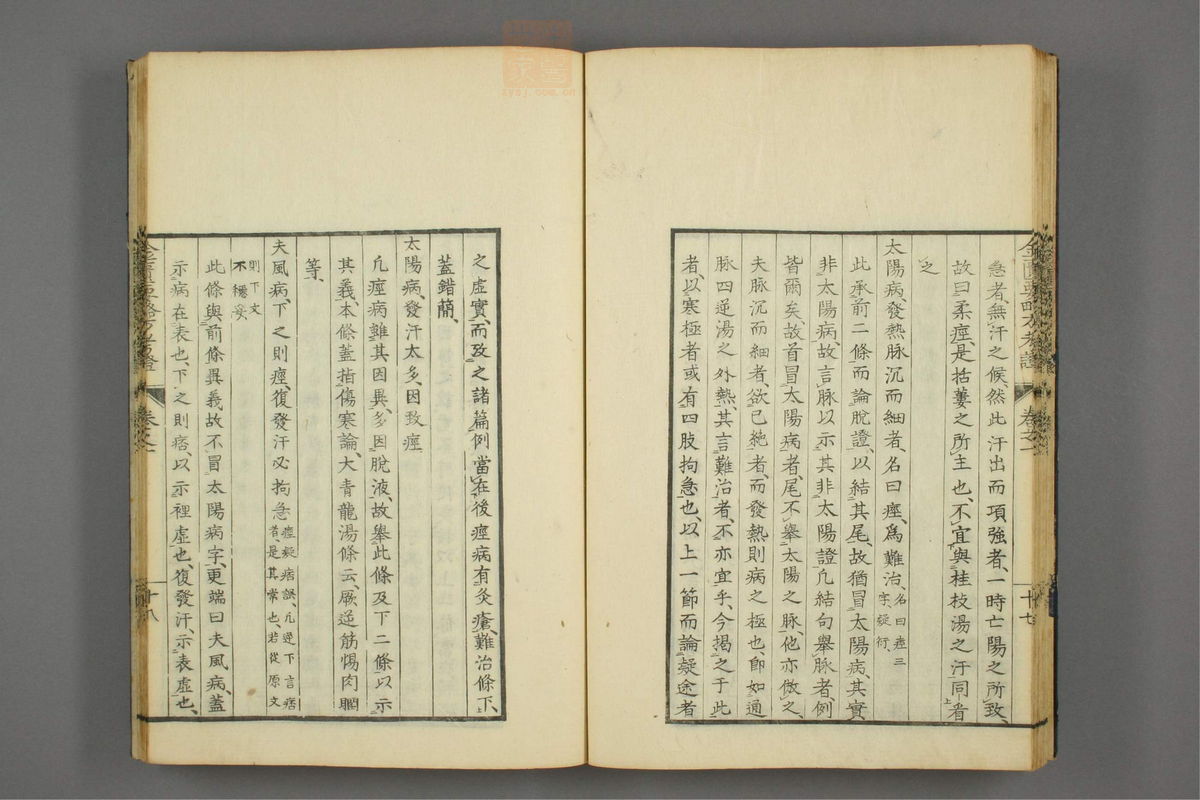 急者、無汗之候、然此汗出而項強者、一時亡陽之所致、
故曰柔痙、是括蔞之所主也、不宜與桂枝湯之汗同看
之
太陽病、發熱脉沉而細者、名曰痙、爲難治、名曰痙三字、疑衍、
此承前二條而論脫證、以結其尾、故猶冒太陽病、其實
非太陽病、故言脉以示其非太陽證、凡結句舉脉者、例
皆爾矣、故首冒太陽病者、尾不舉太陽之脉、他亦倣之、
夫脉沉而細者、欲已絶者、而發熱則病之極也、卽如通
脉四逆湯之外熱、其言難治者、不亦宜乎、今揭之于此
者、以寒極者或有四肢拘急也、以上一節而論疑途者
十七
之虛實、而及之諸篇例、當在後痙病有灸瘡、難治條下、
蓋錯簡、
太陽病、發汗太多、因致痙
凡痙病雖其因異、多因脫液、故舉此條及下二條、以示
其義、本條蓋指傷寒論、大青龍湯條云、厥逆筋惕肉瞤
等、
夫風病、下之則痙、復發汗必拘急痙疑痞誤、凡逆下言痞者、是其常也、若從原文
則下文不穩妥
此條與前條異義、故不冒太陽病字、更端曰夫風病、蓋
示病在表也、下之則痞、以示裡虛也、復發汗、示表虛也、
金匱要略方考證
卷之一
十八